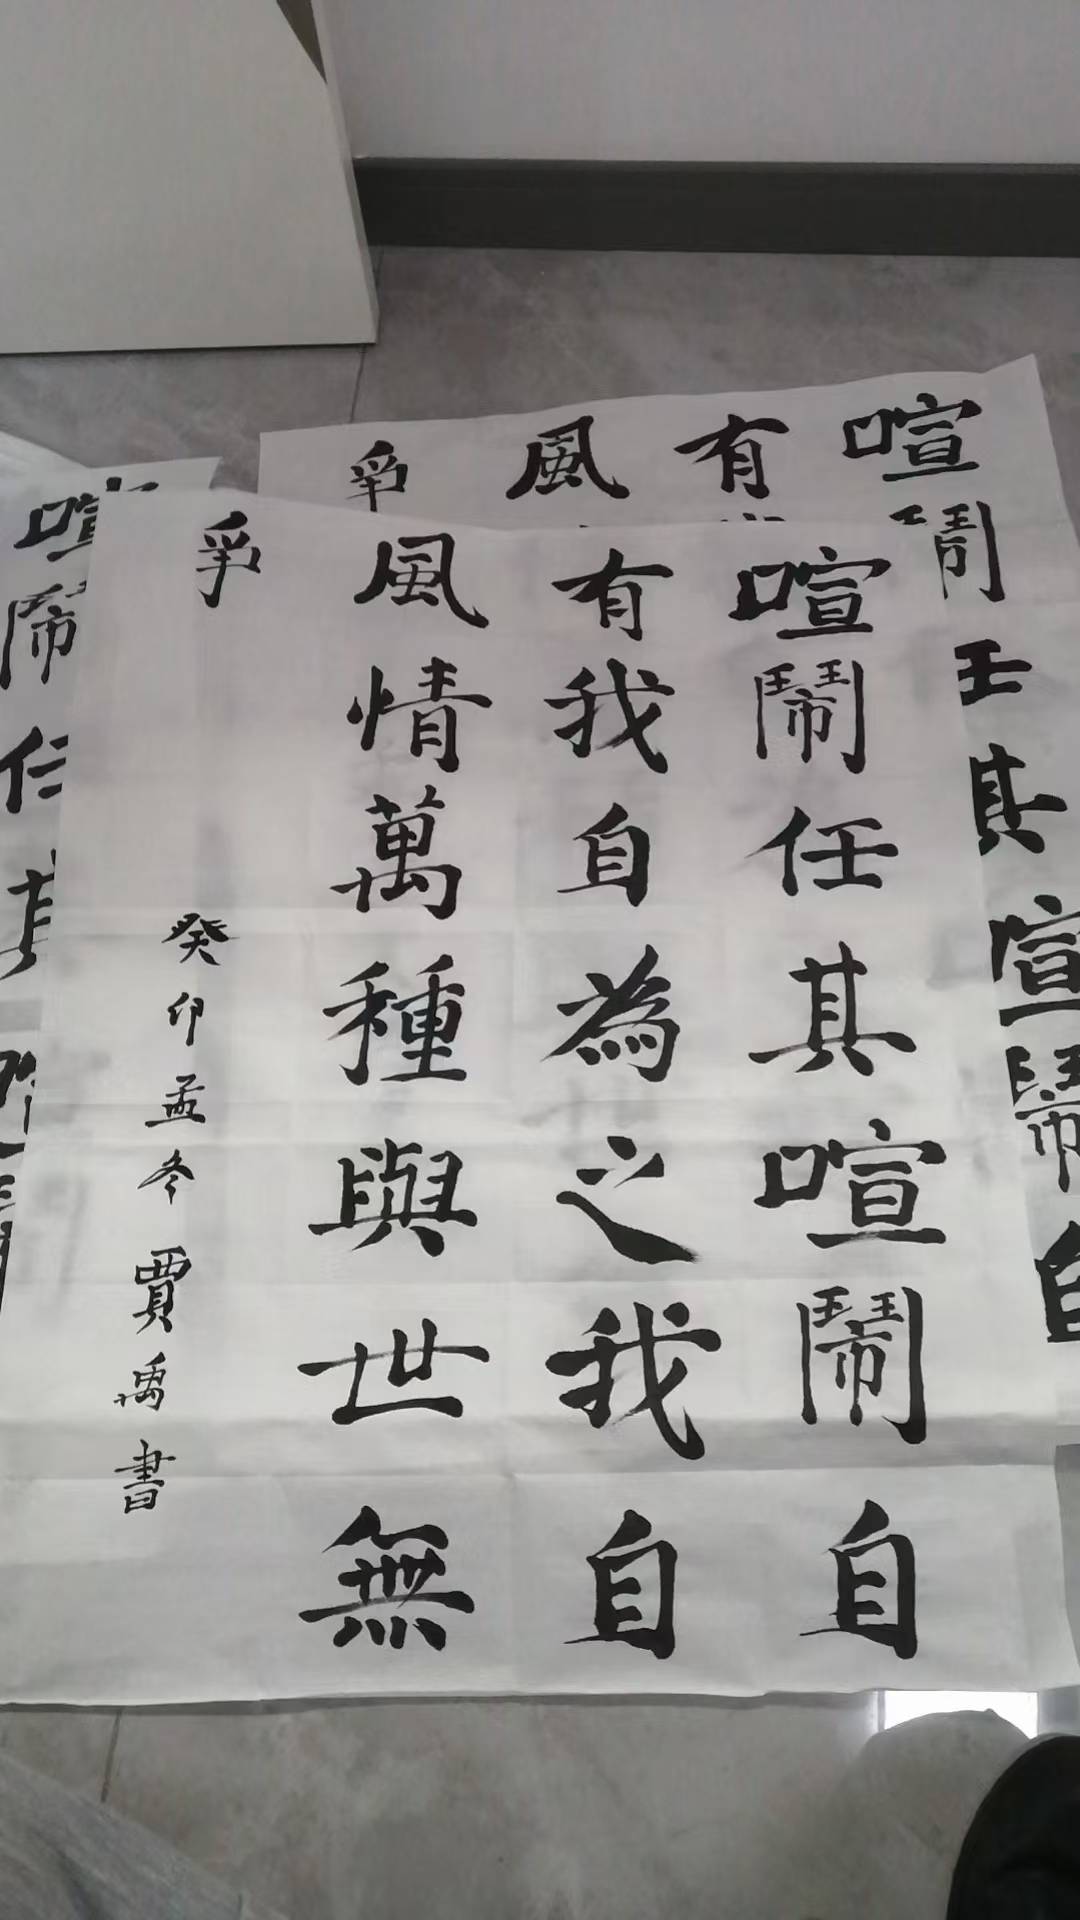 喧鬧任其喧鬧自
有我自為之我自
風情萬種與世無
爭
癸卯孟冬賈禹書
喧鬧
有
風
爭
其喧鬧自
喧鬧任其